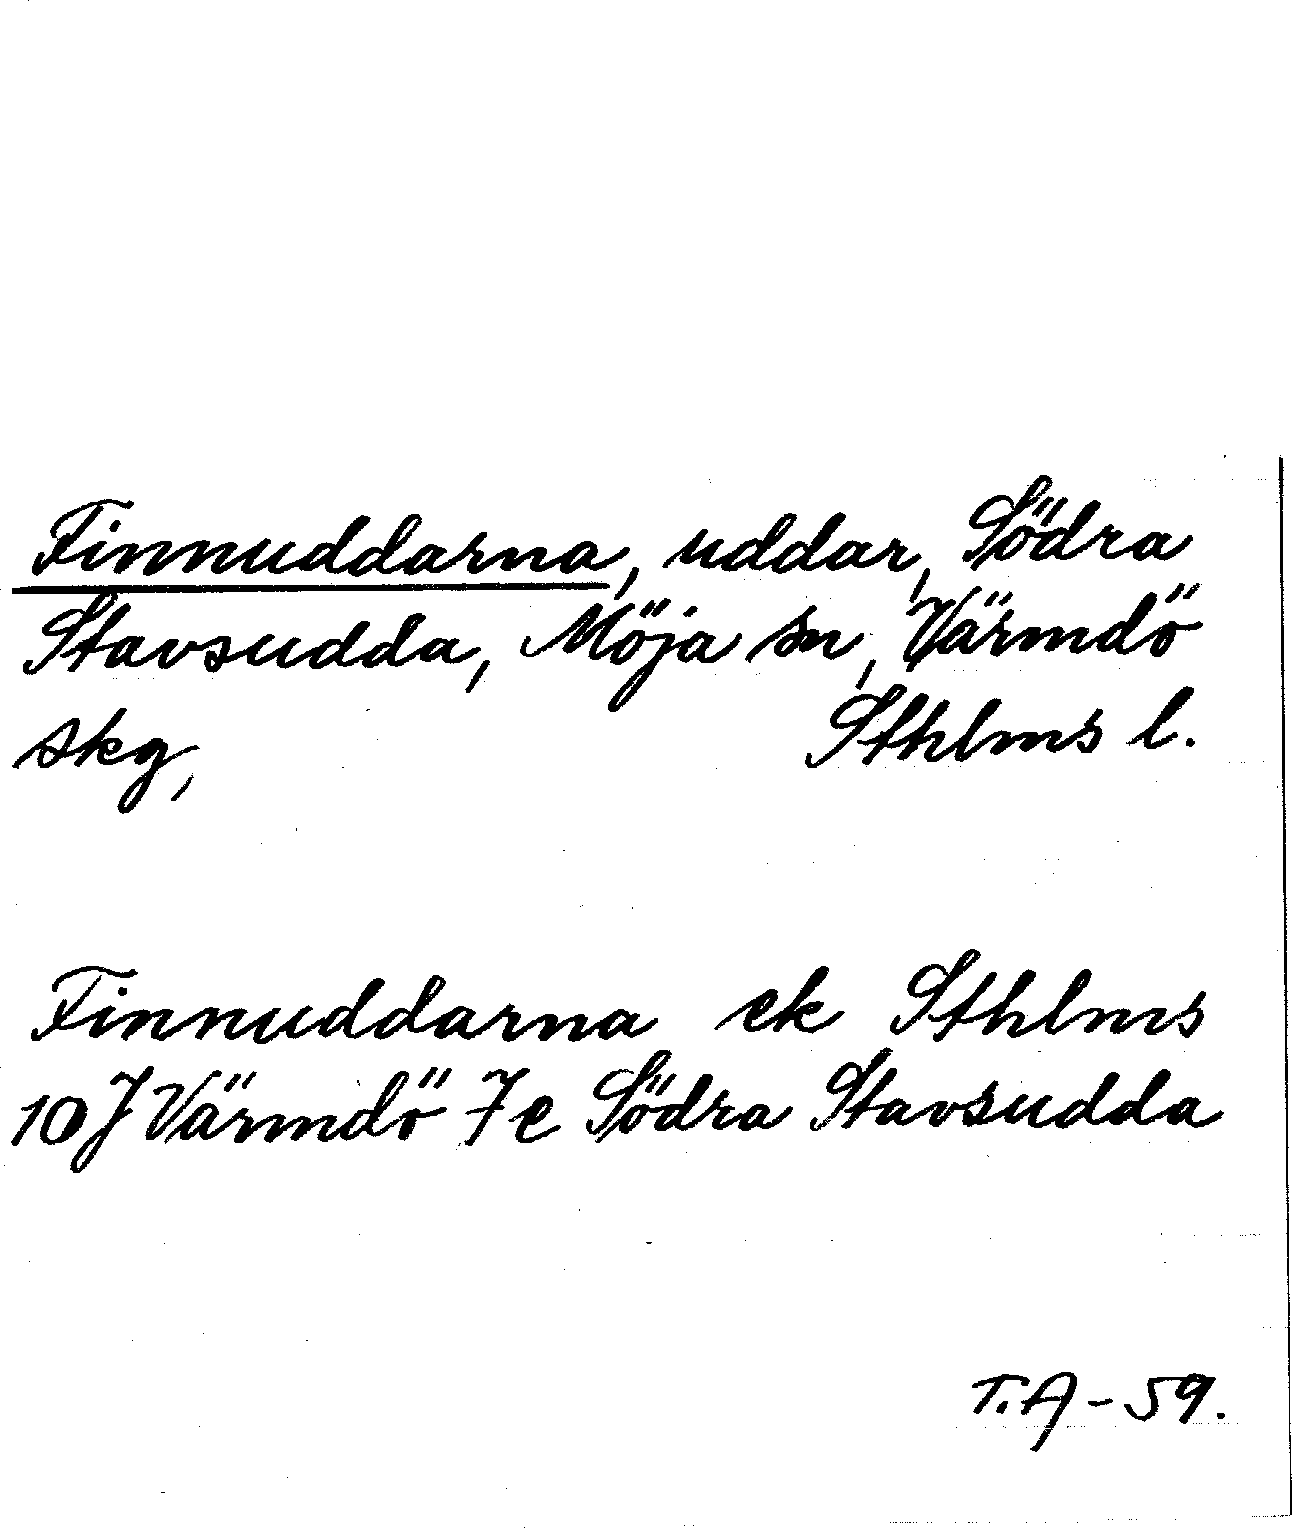 Finnuddarna, uddar, Södra
Stavsudda, Möja sn, Värmdö
skg, Sthlms l.
Finnuddarna ek Sthlms
10J Värmdö 7e Södra Stavsudda
T.A - 59.